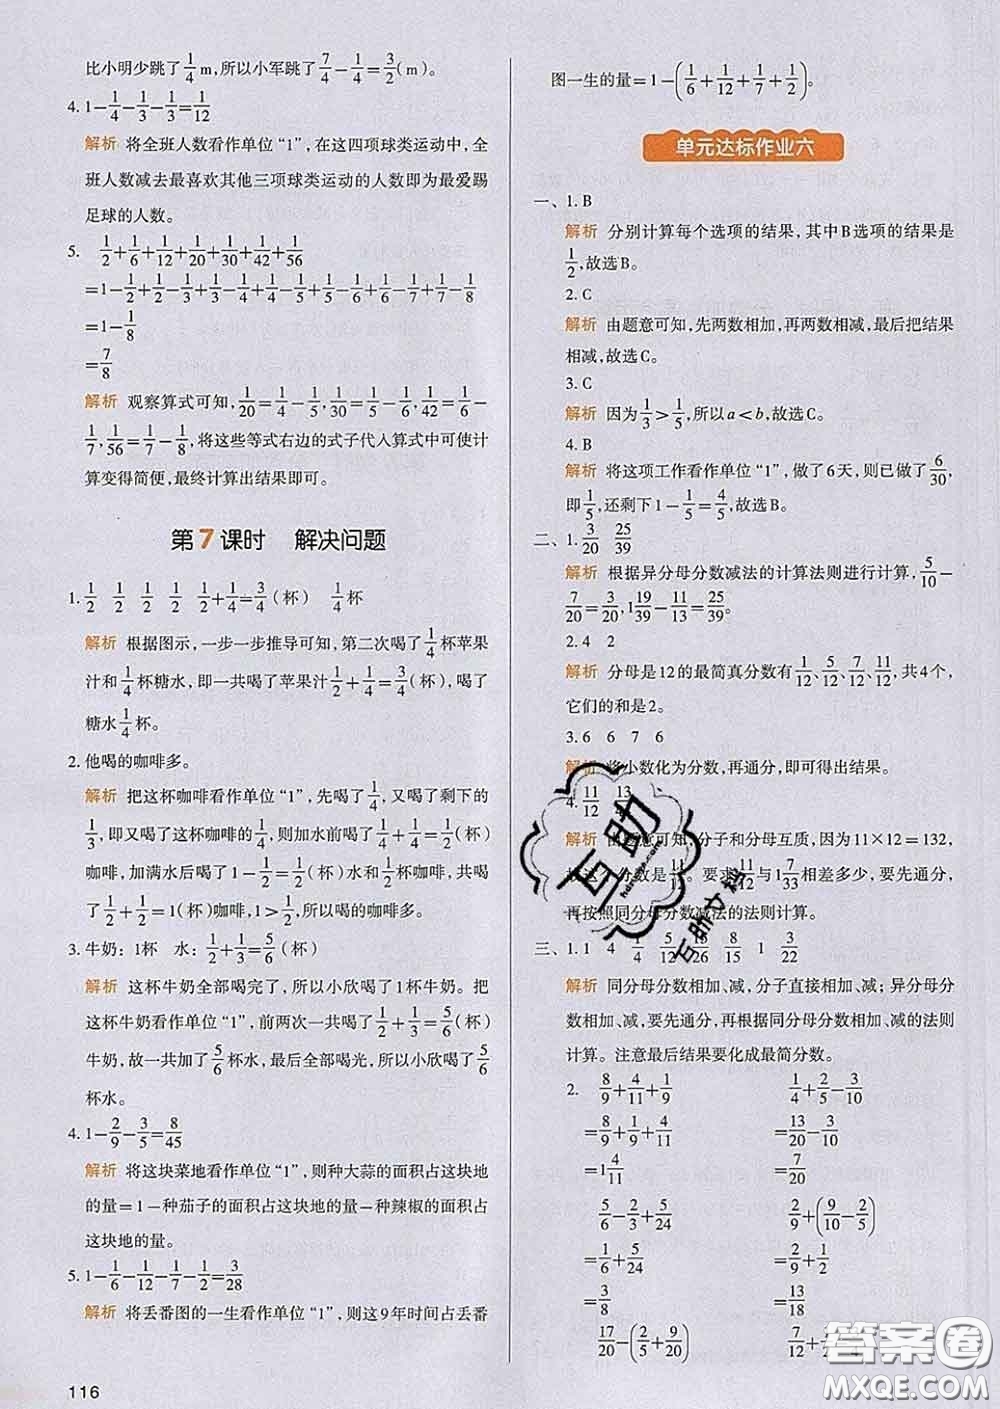 比小明少跳了1/4m,所以小军跳了7/4-1/4=3/2(m)。
4. 1-1/4-1/3-1/3=1/12
解析 将全班人数看作单位“1”,在这四项球类运动中,全
班人数减去最喜欢其他三项球类运动的人数即为最爱踢
足球的人数。
5. 1/2+1/6+1/12+1/20+1/30+1/42+1/56
=1-1/2+1/2-1/3+1/3-1/4+1/4-1/5+1/5-1/6+1/6-1/7+1/7-1/8
=1-1/8
=7/8
解析 观察算式可知,1/20=1/4-1/5,1/30=1/5-1/6,1/42=1/6-
1/7,1/56=1/7-1/8,将这些等式右边的式子代入算式中可使计
算变得简便,最终计算出结果即可。
第7课时 解决问题
1. 1/2 1/2 1/2 1/2 1/2+1/4=3/4(杯) 1/4杯
解析 根据图示,一步一步推导可知,第二次喝了1/4杯苹果
汁和1/4杯糖水,即一共喝了苹果汁1/2+1/4=3/4(杯),喝了
糖水1/4杯。
2. 他喝的咖啡多。
解析 把这杯咖啡看作单位“1”,先喝了1/4,又喝了剩下的
1/3,即又喝了这杯咖啡的1/4,则加水前喝了1/4+1/4=1/2(杯)
咖啡,加满水后喝了1-1/2=1/2(杯)水和1/2杯咖啡,共喝
了1/2+1/2=1(杯)咖啡,1>1/2,所以他喝的咖啡多。
3. 牛奶:1杯 水:1/2+1/3=5/6(杯)
解析 这杯牛奶全部喝完了,所以小欣喝了1杯牛奶。把
这杯牛奶看作单位“1”,前两次一共喝了1/2+1/3=5/6(杯)
牛奶,故一共加了5/6杯水,最后全部喝光,所以小欣喝了5/6
杯水。
4. 1-2/9-3/5=8/45
解析 将这块菜地看作单位“1”,则种大蒜的面积占这块地
的量=1-种茄子的面积占这块地的量-种辣椒的面积占
这块地的量。
5. 1-1/6-1/12-1/7-1/2=3/28
解析 将丢番图的一生看作单位“1”,则这9年时间占丢番
116
图一生的量=1-(1/6+1/12+1/7+1/2)。
单元达标作业六
一、1. B
解析 分别计算每个选项的结果,其中B选项的结果是
1/2,故选B。
2. C
解析 由题意可知,先两数相加,再两数相减,最后把结果
相减,故选C。
3. C
解析 因为1/3>1/5,所以a<b,故选C。
4. B
解析 将这项工作看作单位“1”,做了6天,则已做了6/30,
即1/5,还剩下1-1/5=4/5,故选B。
二、1. 3/20 25/39
解析 根据异分母分数减法的计算法则进行计算,5/10-
7/20=3/20,1 19/39-11/13=25/39。
2. 4 2
解析 分母是12的最简真分数有1/12、5/12、7/12、11/12,共4个,
它们的和是2。
3. 6 6 7 6
解析 将小数化为分数,再通分,即可得出结果。
4. 11/12
解析 由题意可知,分子和分母互质,因为11×12=132,
故这个分数是11/12。要求11/12与1 7/33相差多少,要先通分,
再按照同分母分数减法的法则计算。
三、1. 1 4 1/4 5/12 15/26 8/15 1 3/22
解析 同分母分数相加、减,分子直接相加、减;异分母分
数相加、减,要先通分,再根据同分母分数相加、减的法则
计算。注意最后结果要化成最简分数。
2. 8/9+4/11+1/9
=8/9+1/9+4/11
=1 4/11
1/4+2/5-3/10
=13/20-3/10
=7/20
5/6-2/3+5/24
=1/6+5/24
=3/8
2/9+(9/10-2/5)
=2/9+1/2
=13/18
17/20-(2/5+9/20)
互助
互助文档
答案圈
MXQE.COM